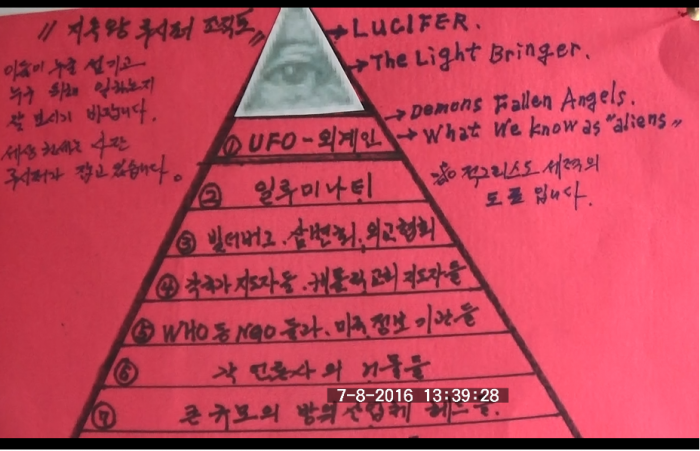 〃 지옥왕 루시퍼 조직도 〃
→ LUCIFER.
→ The Light Bringer.
이들이 누굴 섬기고
누구 위해 일하는지
잘 보시기 바랍니다.
세상 권세는 사단
루시퍼가 잡고 있습니다.
→ Demons Fallen Angels.
→ What We know as "aliens"
※ 적그리스도 세력의
도표 입니다.
① UFO - 외계인
② 일루미나티
③ 빌더버그. 삼변회. 외교협회
④ 각국가 지도자들. 캐톨릭교회 지도자들
⑤ WHO 등 NGO 들과. 미국 정보 기관들
⑥ 각 언론사의 거물들
⑦ 큰 규모의 방위산업체 헤드들.
7-8-2016 13:39:28